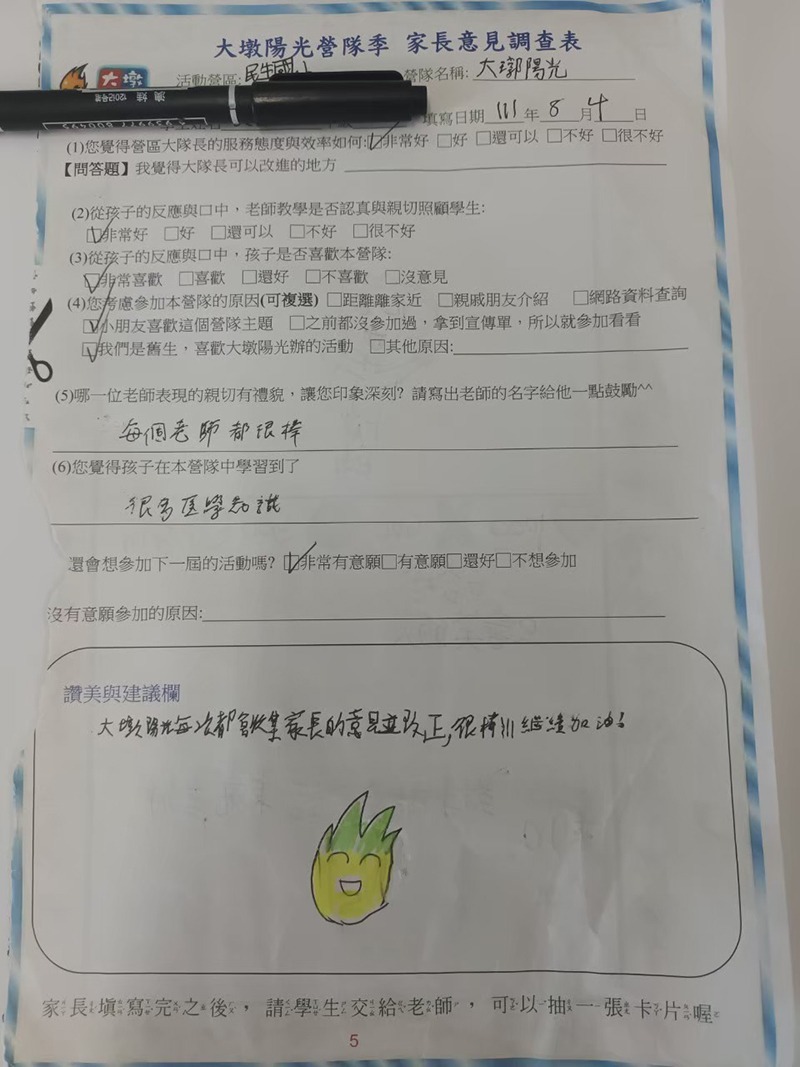 大墩陽光營隊季 家長意見調查表
大墩
活動營區:民生國小 營隊名稱: 大墩陽光
填寫日期 111 年 8 月 4 日
(1)您覺得營區大隊長的服務態度與效率如何:☑非常好 □好 □還可以 □不好 □很不好
【問答題】我覺得大隊長可以改進的地方
(2)從孩子的反應與口中，老師教學是否認真與親切照顧學生:
☑非常好 □好 □還可以 □不好 □很不好
(3)從孩子的反應與口中，孩子是否喜歡本營隊:
☑非常喜歡 □喜歡 □還好 □不喜歡 □沒意見
(4)您考慮參加本營隊的原因(可複選) □距離離家近 □親戚朋友介紹 □網路資料查詢
☑小朋友喜歡這個營隊主題 □之前都沒參加過，拿到宣傳單，所以就參加看看
☑我們是舊生，喜歡大墩陽光辦的活動 □其他原因:
(5)哪一位老師表現的親切有禮貌，讓您印象深刻? 請寫出老師的名字給他一點鼓勵^^
每個老師都很棒
(6)您覺得孩子在本營隊中學習到了
很多医學知識
還會想參加下一屆的活動嗎? ☑非常有意願□有意願□還好□不想參加
沒有意願參加的原因:
讚美與建議欄
大墩陽光每次都會收集家長的意見並改正,很棒!!! 繼續加油!
家長填寫完之後，請學生交給老師，可以抽一張卡片喔
5